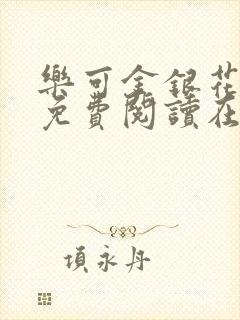 樂可金銀花
免費閱讀在
項永丹